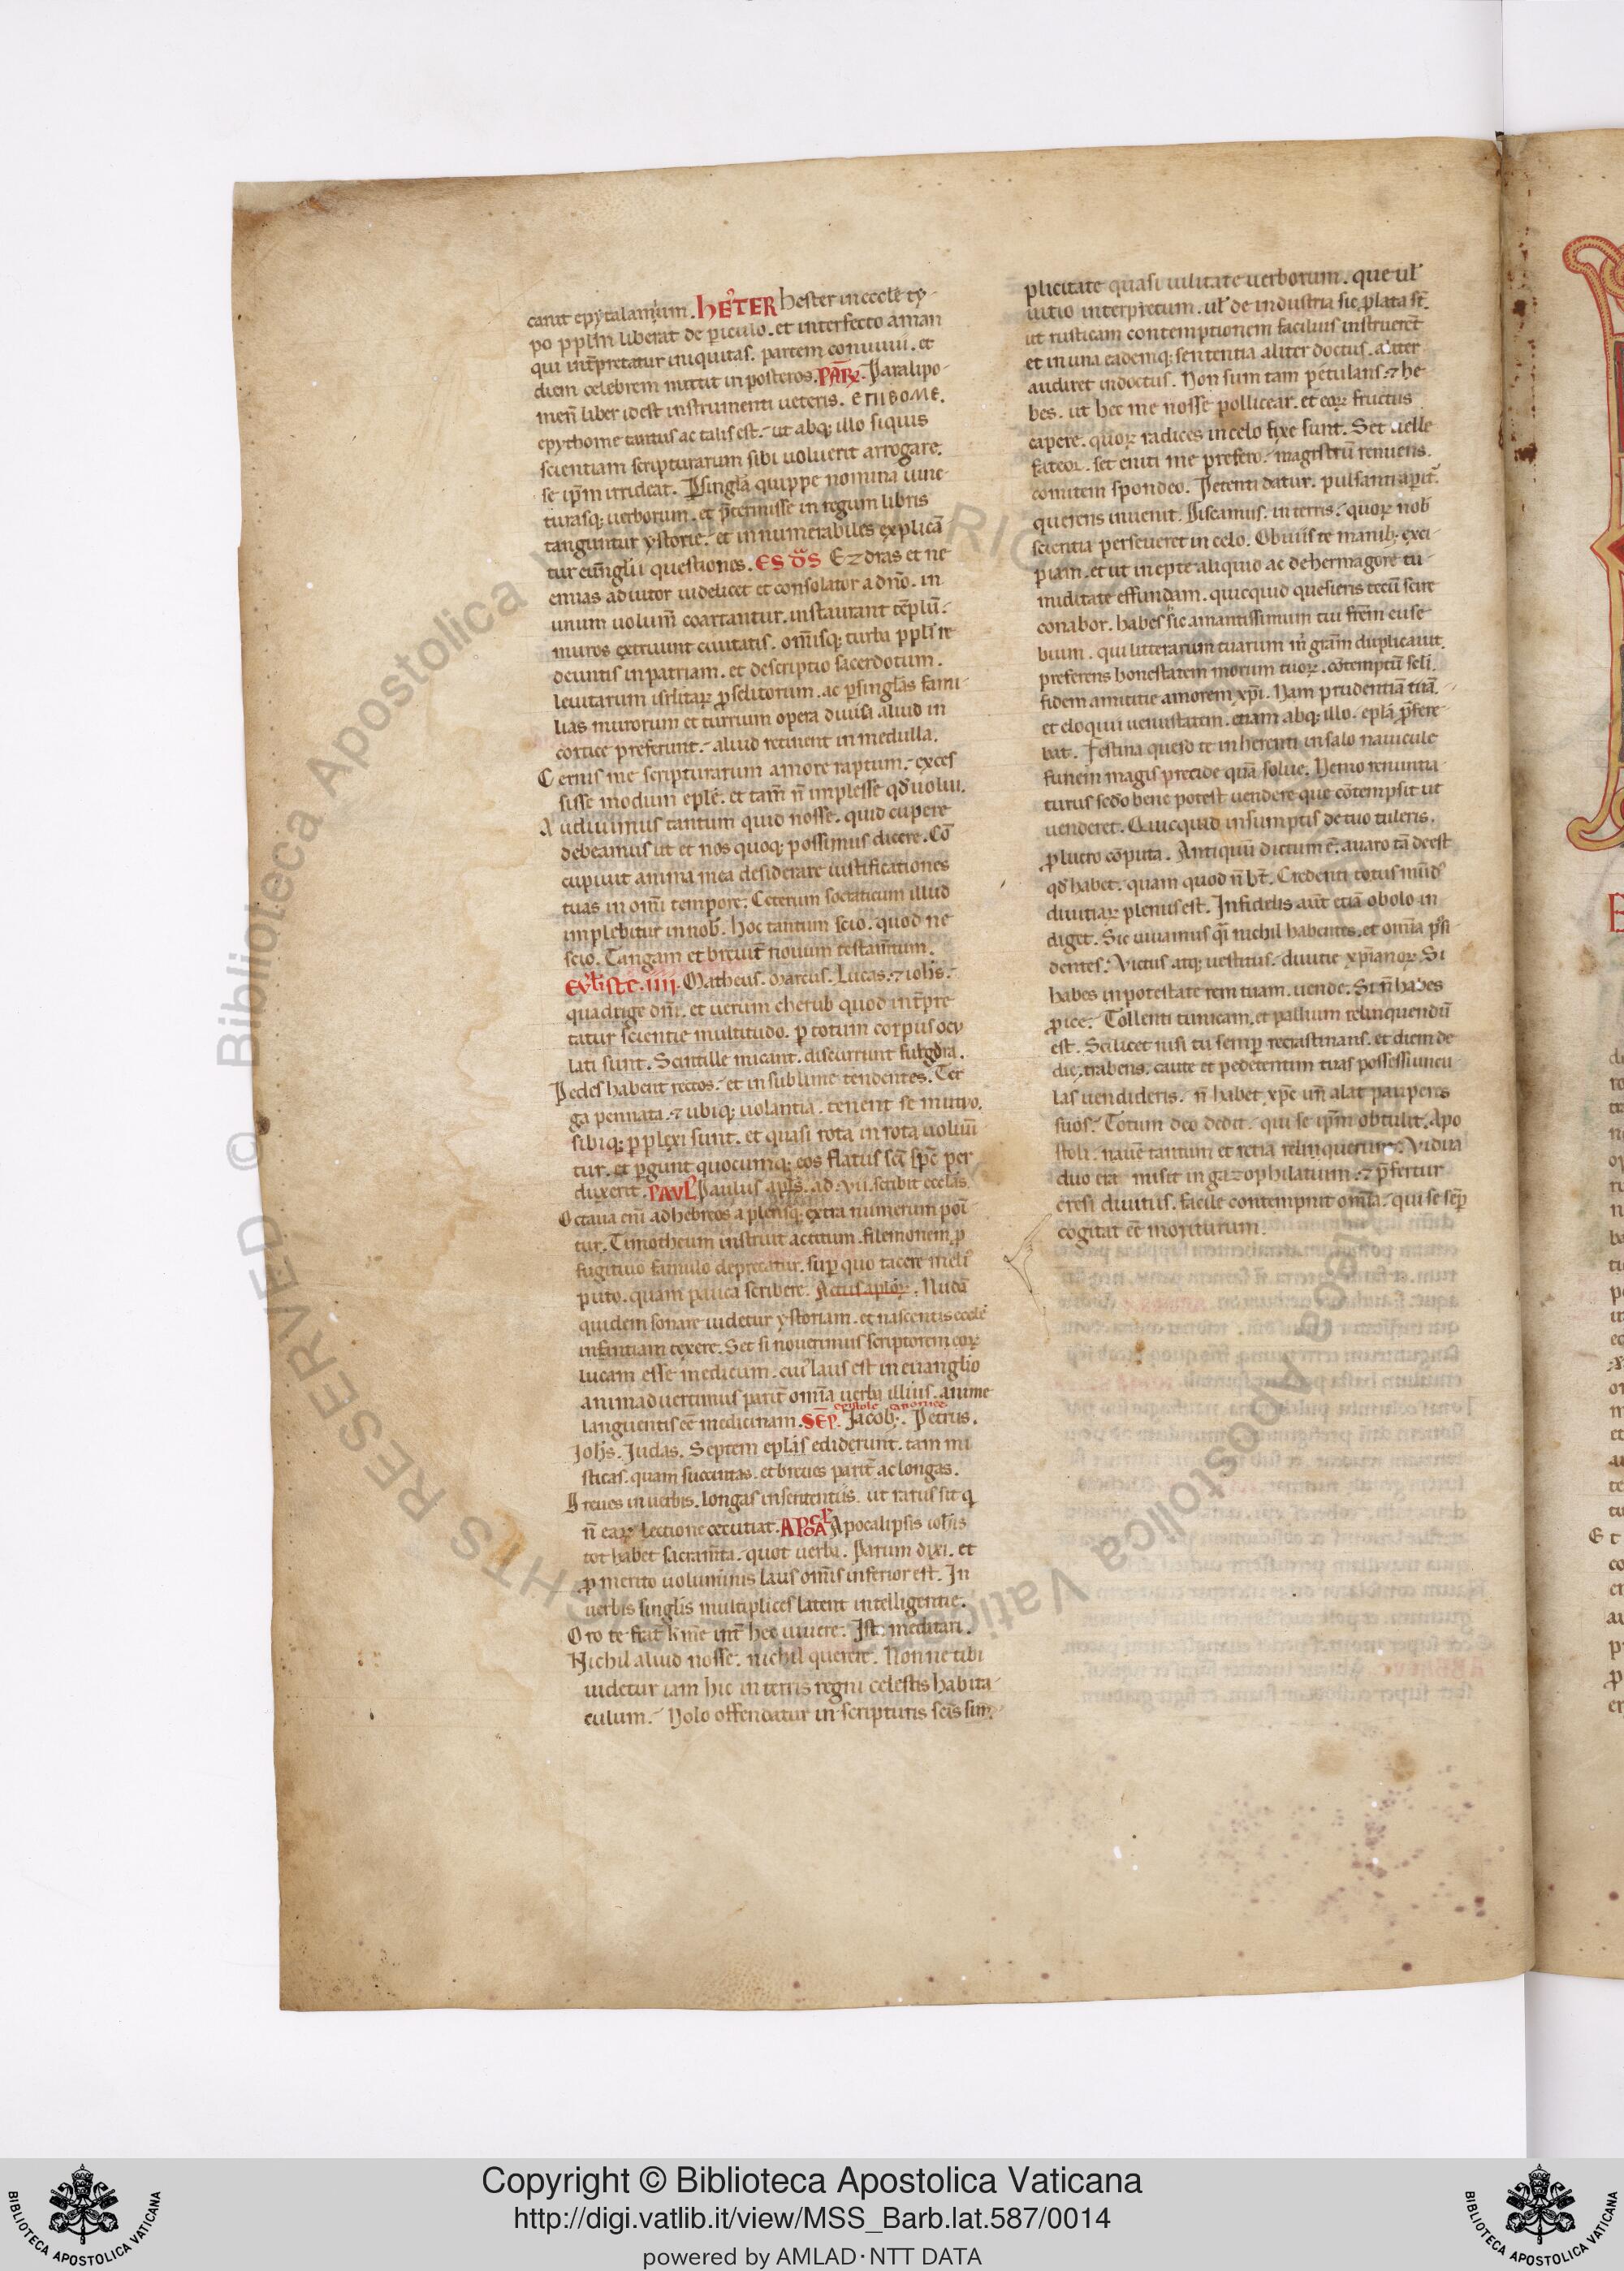 canit epytalamium. HESTER hester in eccle ty-
po pplm liberat de piculo. et interfecto aman
qui intpretatur iniquitas. partem conuiuii. et
diem celebrem mittit in posteros. PAR. Paralipo-
men liber id est instrumenti ueteris.
epythome tantus ac talis est. ut absq; illo siquis
scientiam scripturarum sibi uoluerit arrogare.
se ipm irrideat. Psingla quippe nomina iunc-
turasq; uerborum. et ptermisse in regum libris
tanguntur ystorie. et innumerabiles explican
tur eunglii questiones. Ezdras et ne
emias adiutor uidelicet et consolator a dno. in
unum uolum coartantur. instaurant teplu.
muros extruunt ciuitatis. omisq; turba ppli re
deuntis in patriam. et descriptio sacerdotum.
leuitarum isrlitar pselitorum. ac psinglas fami-
lias murorum et turrium opera diuisa. aliud in
cortice preferunt. aliud retinent in medulla.
Cernis me scripturarum amore raptum. exces
sisse modum eple. et tam n implesse qd uolui.
Audiuimus tantum quid nosse. quid cupere
debeamus ut et nos quoq; possimus dicere. Co
cupiuit anima mea desiderare iustificationes
tuas in omi tempore. Ceterum socraticum illud
implebitur in nob. hoc tantum scio. quod ne
scio. Tangam et breuit nouum testamtum.
iiii. Matheus. Marcus. Lucas. et iohs.
quadrige dni. et uerum cherub quod intpre
tatur scientie multitudo. p totum corpus ocu
lati sunt. Scintille micant. discurrunt fulgora.
Pedes habent rectos. et in sublime tendentes. Ter
ga pennata. et ubiq; uolantia. tenent se mutuo.
sibiq; pplexi sunt. et quasi rota in rota uolum
tur. et pgunt quocumq; eos flatus sci sps per
duxerit. PAVL Paulus apls. ad. vii. scribit ecclas.
Octaua eni ad hebreos a plerisq; extra numerum poi
tur. Timotheum instruit ac titum. filemonem p
fugitiuo famulo deprecatur. sup quo tacere meli
puto. quam pauca scribere. Actus aplor. Nuda
quidem sonare uidetur ystoriam. et nascentis eccle
infantiam texere. Set si nouerimus scriptorem eor
lucam esse medicum. cui laus est in euanglio
animaduertimus parit omia uerba illius. anime
epistole canonice
languentis ee medicinam. SEP. Jacob. Petrus.
Johs. Judas. Septem eplas ediderunt. tam mi
sticas. quam succintas. et breues parit ac longas.
Breues in uerbis. longas in sententiis. ut rarus sit q
n ear lectione cecutiat. Apocalipsis iohis
tot habet sacramta. quot uerba. Parum dixi. et
p merito uoluminis laus omis inferior est. In
uerbis singlis multiplices latent intelligentie.
Oro te frat kme int hec uiuere. Ista meditari.
Nichil aliud nosse. nichil querere. Nonne tibi
uidetur iam hic in terris regni celestis habita-
culum. Nolo offendatur in scripturis scis sim-
plicitate quasi uilitate uerborum. que ul
uitio interpretum. ul de industria sic plata st.
ut rusticam contemptionem facilius instrueret
et in una eademq; sententia aliter doctus. aliter
audiret indoctus. Non sum tam petulans. et he
bes. ut hec me nosse pollicear. et eor fructus
capere. quor radices in celo fixe sunt. Set uelle
fateor. set eniti me prefero. magistru renuens.
comitem spondeo. Petenti datur. pulsanti aperit.
querens inuenit. Discamus. in terris. quor nob
scientia perseueret in celo. Obuiis te manib; exci-
piam. et ut inepte aliquid ac de hermagore tu-
miditate effundam. quicquid quesieris tecu scire
conabor. habes sic amantissimum tui frem euse
bium. qui litterarum tuarum m gram duplicauit.
preferens honestatem morum tuor. cotemptu seli.
fidem amicitie amorem xpi. Nam prudentia tua.
et eloquii uenustatem. etiam absq; illo. epla pfere-
bat. Festina queso te inherenti in salo nauicule
funem magis precide qua solue. Nemo renuntia-
turus sedo bene potest uendere que cotempsit ut
uenderet. Quicquid insumptis de tuo tuleris.
p lucro coputa. Antiquu dictum e. auaro ta deest
qd habet. quam quod n ht. Credenti totus mund
diuitiar plenus est. Infidelis aut etia obolo in
diget. Sic uiuamus qi nichil habentes. et omia possi
dentes. Victus atq; uestitus. diuitie xpianor. Si
habes in potestate rem tuam. uende. Si n habes
pice. Tollenti tunicam. et pallium relinquendu
est. Scilicet nisi tu semp recrastinans. et diem de
die trahens. caute et pedetentim tuas possessiuncu
las uendideris. n habet xpc un alat pauperes
suos. Totum deo dedit. qui se ipm obtulit. Apo
stoli. naue tantum et retia relinquerunt. Vidua
duo era misit in gazophilatium. et pfertur
cresi diuitiis. facile contempnit omia. qui se semp
cogitat ee moriturum.
Copyright © Biblioteca Apostolica Vaticana
http://digi.vatlib.it/view/MSS_Barb.lat.587/0014
powered by AMLAD·NTT DATA